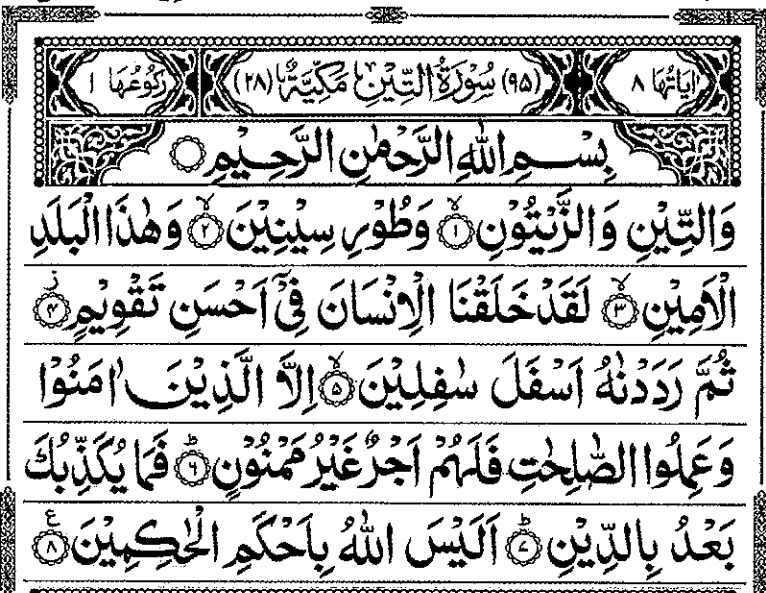 اٰیَاتُهَا ۸ (۹۵) سُوْرَةُ التِّیْنِ مَكِّیَّةٌ (۲۸) رُكُوْعُهَا ۱
بِسْمِ اللّٰهِ الرَّحْمٰنِ الرَّحِیْمِ
وَالتِّیْنِ وَالزَّیْتُوْنِ ۙ‏﴿۱﴾ وَطُوْرِ سِیْنِیْنَ ۙ‏﴿۲﴾ وَهٰذَا الْبَلَدِ
الْاَمِیْنِ ۙ‏﴿۳﴾ لَقَدْ خَلَقْنَا الْاِنْسَانَ فِیْۤ اَحْسَنِ تَقْوِیْمٍ ؗ‏﴿۴﴾
ثُمَّ رَدَدْنٰهُ اَسْفَلَ سٰفِلِیْنَ ۙ‏﴿۵﴾ اِلَّا الَّذِیْنَ اٰمَنُوْا
وَعَمِلُوا الصّٰلِحٰتِ فَلَهُمْ اَجْرٌ غَیْرُ مَمْنُوْنٍ ؕ‏﴿۶﴾ فَمَا یُكَذِّبُكَ
بَعْدُ بِالدِّیْنِ ؕ‏﴿۷﴾ اَلَیْسَ اللّٰهُ بِاَحْكَمِ الْحٰكِمِیْنَ ﴿۸﴾ ع